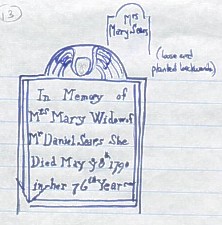 13
Mrs
Mary Sears
(loose and
planted backwards)
In Memory of
Mrs Mary Widow of
Mr Daniel Sears She
Died May 8th 1790
in her 76th Year